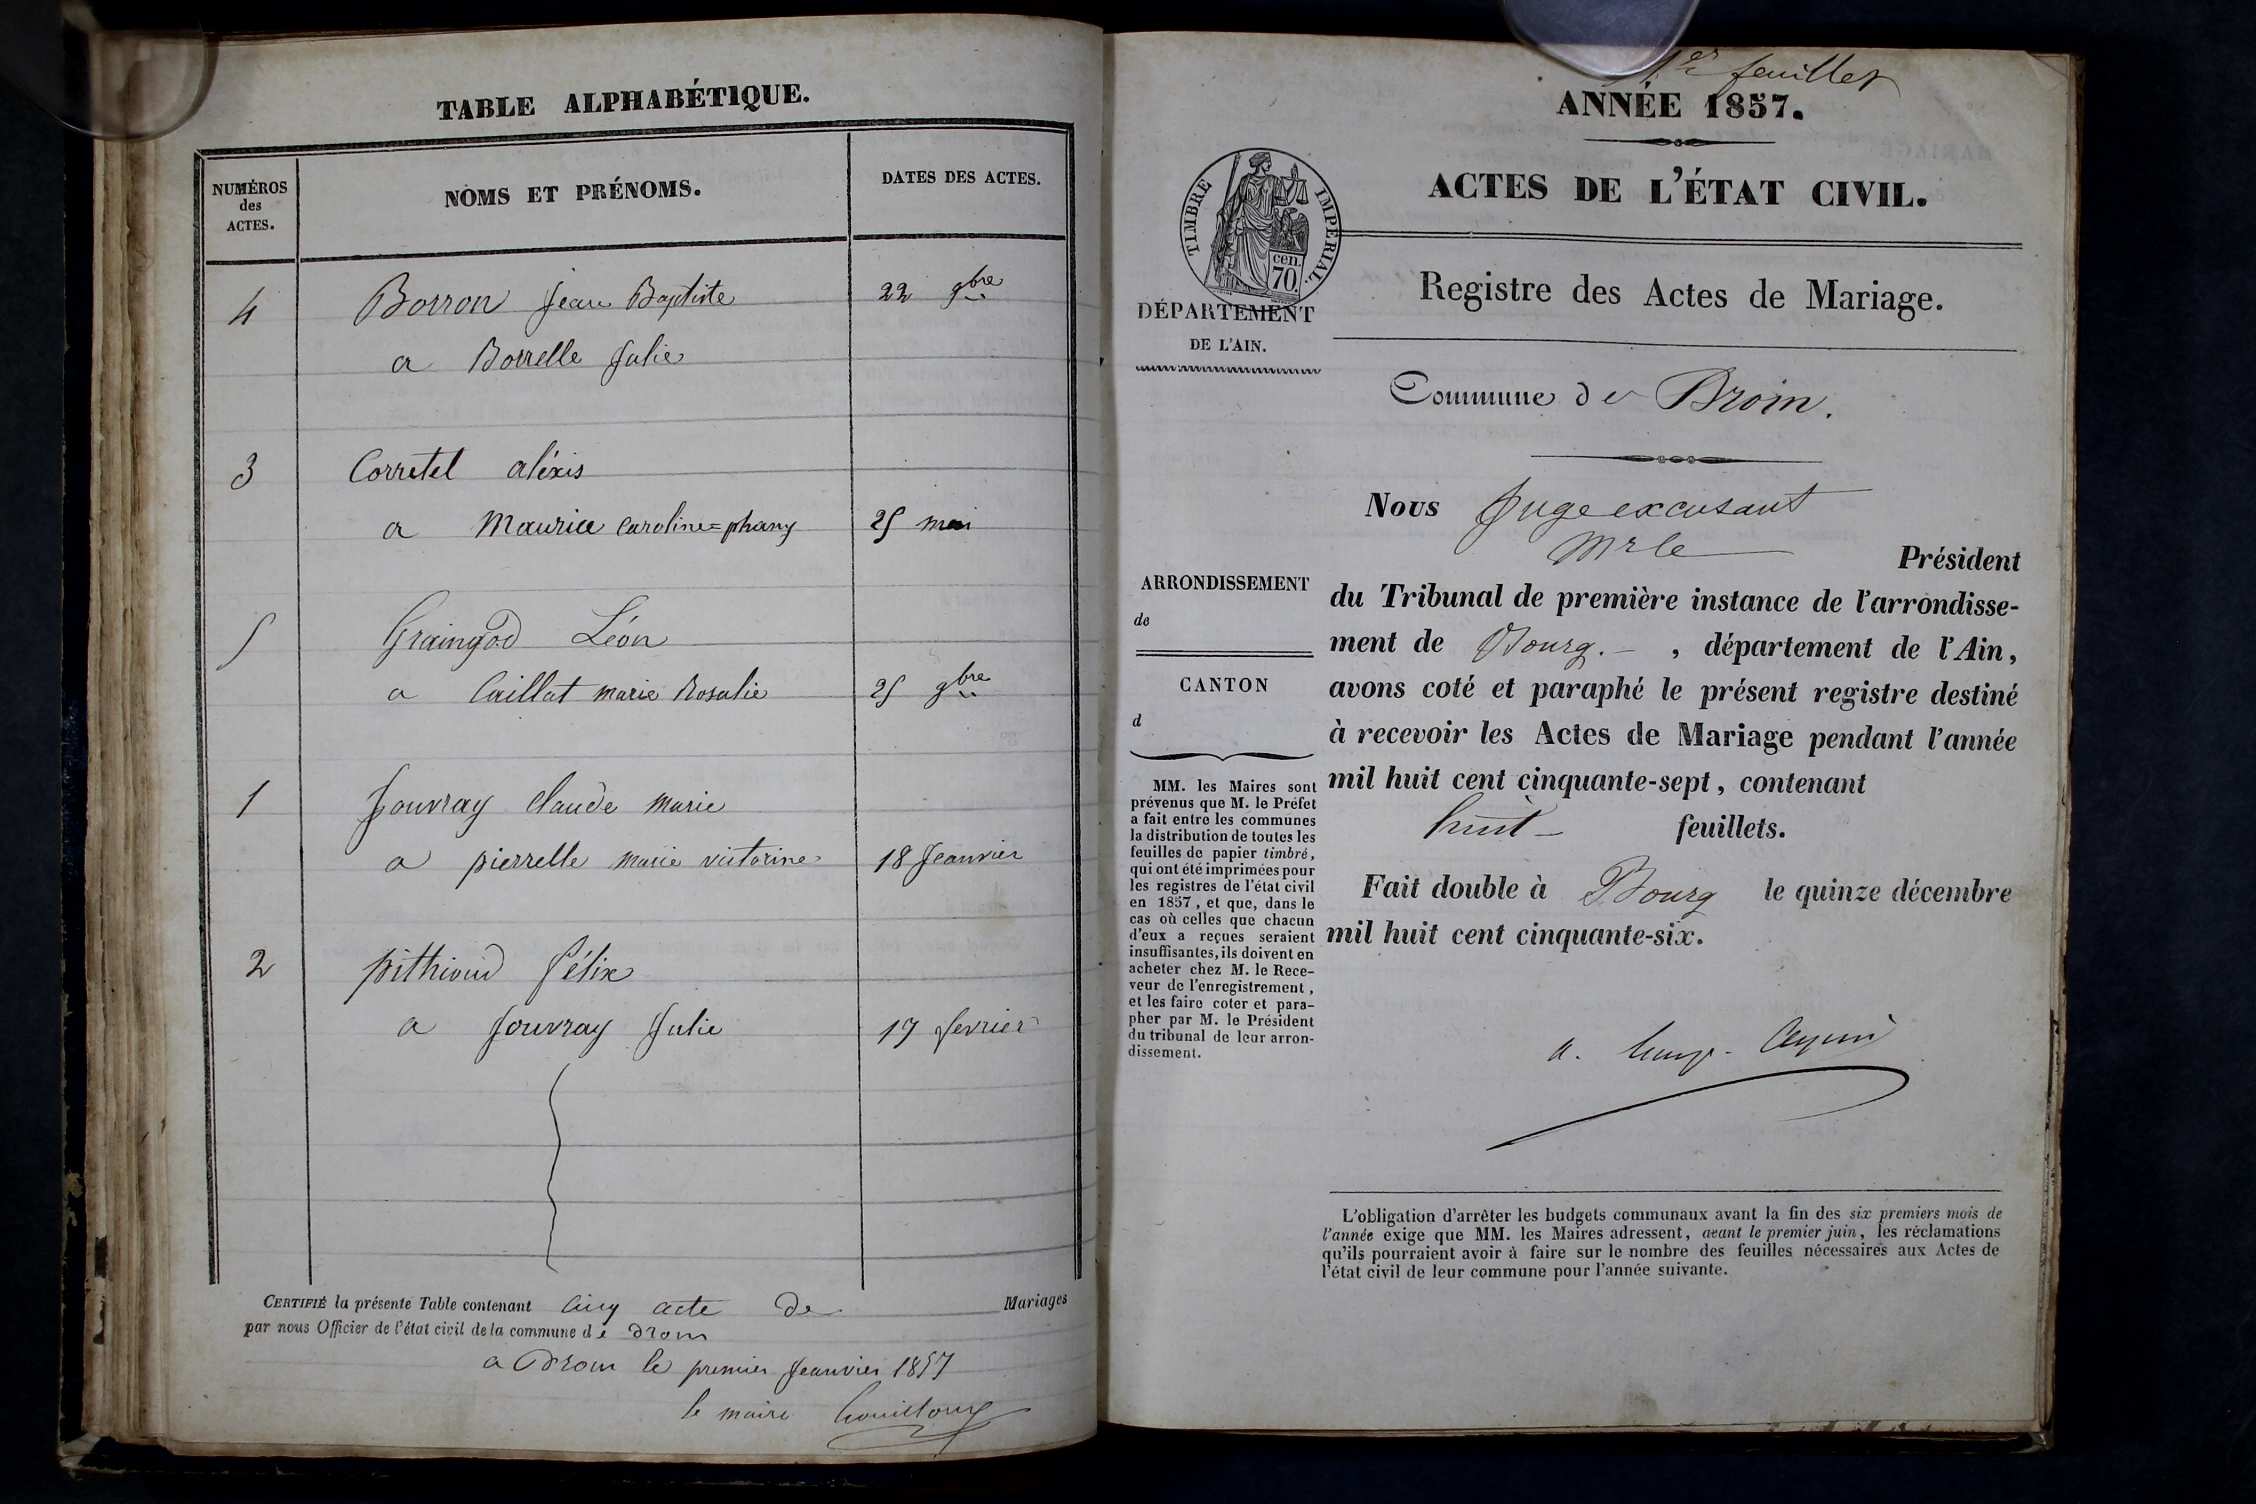 TABLE ALPHABÉTIQUE.
NUMÉROS des ACTES.
NOMS ET PRÉNOMS.
DATES DES ACTES.
4 Borron jean Baptiste 22 9bre
a Borrelle Julie
3 Corretel aléxis
a Maurice Caroline=phany 25 mai
5 Graingod Léon
a Caillat marie Rosalie 25 9bre
1 Jouvray claude marie
a pierrelle marie victorine 18 Jeanvier
2 pithioud félix
a Jouvray Julie 19 fevrier
CERTIFIÉ la présente Table contenant cinq acte de Mariages
par nous Officier de l'état civil de la commune de Drom
a Drom le premier Jeanvier 1857
le maire
1er feuillet
ANNÉE 1857.
ACTES DE L'ÉTAT CIVIL.
TIMBRE IMPÉRIAL.
cen.
70.
DÉPARTEMENT
DE L'AIN.
Registre des Actes de Mariage.
Commune de Drom.
Nous Juge excusant
Mr le Président
du Tribunal de première instance de l'arrondisse-
ment de Bourg. , département de l'Ain,
avons coté et paraphé le présent registre destiné
à recevoir les Actes de Mariage pendant l'année
mil huit cent cinquante-sept, contenant
huit feuillets.
Fait double à Bourg le quinze décembre
mil huit cent cinquante-six.
ARRONDISSEMENT
de
CANTON
d
MM. les Maires sont
prévenus que M. le Préfet
a fait entre les communes
la distribution de toutes les
feuilles de papier timbré,
qui ont été imprimées pour
les registres de l'état civil
en 1857, et que, dans le
cas où celles que chacun
d'eux a reçues seraient
insuffisantes, ils doivent en
acheter chez M. le Rece-
veur de l'enregistrement,
et les faire coter et para-
pher par M. le Président
du tribunal de leur arron-
dissement.
L'obligation d'arrêter les budgets communaux avant la fin des six premiers mois de
l'année exige que MM. les Maires adressent, avant le premier juin, les réclamations
qu'ils pourraient avoir à faire sur le nombre des feuilles nécessaires aux Actes de
l'état civil de leur commune pour l'année suivante.